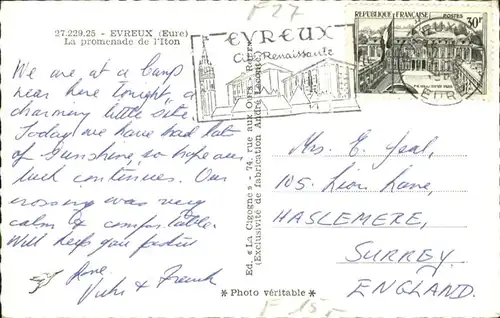 F 27
27.229.25 - EVREUX (Eure)
La promenade de l'Iton
EVREUX
Cité Renaissante
REPUBLIQUE FRANÇAISE
POSTES
30F
We are at a Camp
near here tonight, a
charming little site.
Today we have had lots
of Sunshine, so hope our
luck continues. Our
crossing was very
calm & comfortable.
Will keep you posted
Love
& Frank
Ed. « La Cigogne » - 74, rue aux Ours - Rouen
(Exclusivité de fabrication André Leconte)
Mrs. E.
105, Lion Lane,
HASLEMERE,
SURREY
ENGLAND.
* Photo véritable *